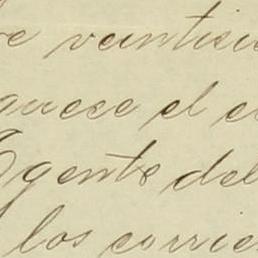 e veintisie
quese el c
Agente del
los corrie